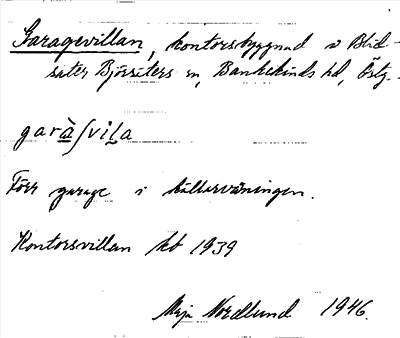 Garagevillan, kontorsbyggnad i Blid-
säter Björsäters sn, Bankekinds hd, Östg.
garà∫vila
Förr garage i källarvåningen.
Kontorsvillan kb 1939
Maja Nordlund 1946.